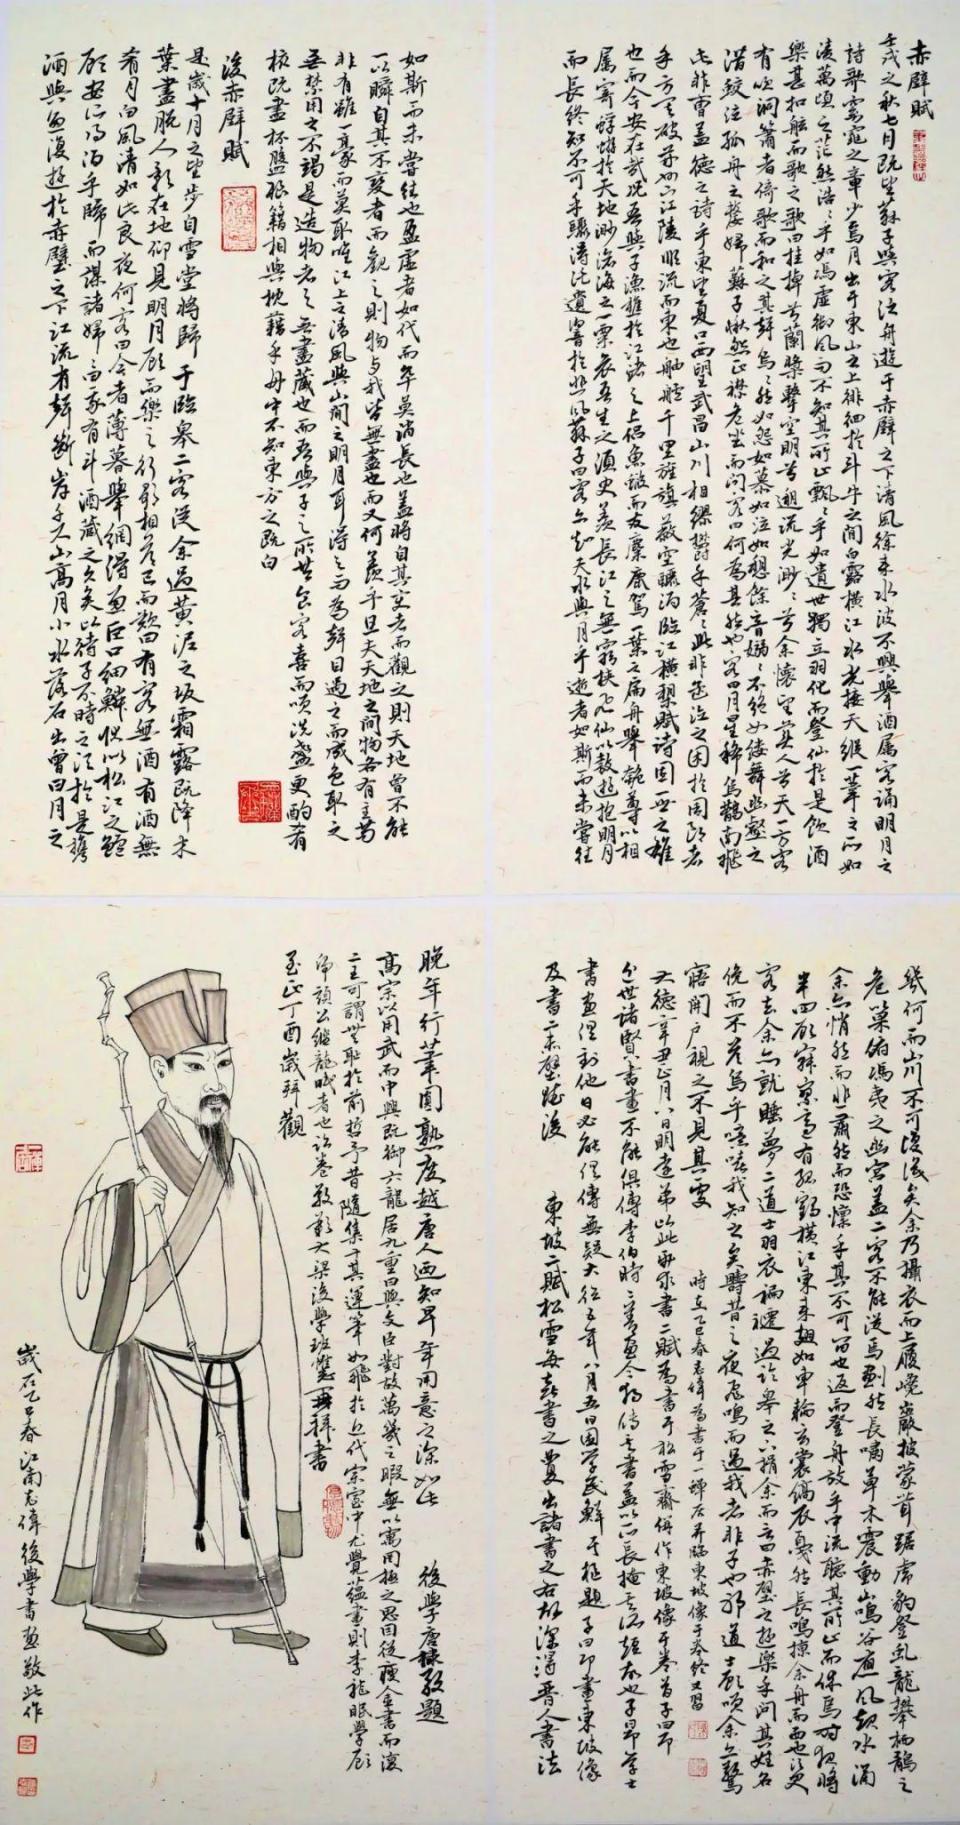 赤壁賦
壬戌之秋七月既望蘇子與客泛舟遊于赤壁之下清風徐來水波不興舉酒属客誦明月之
詩歌窈窕之章少焉月出于東山之上徘徊於斗牛之間白露横江水光接天縱一葦之所如
凌萬頃之茫然浩々乎如馮虚御風而不知其所止飄々乎如遺世獨立羽化而登仙於是飲酒
樂甚扣舷而歌之歌曰桂棹兮蘭槳擊空明兮遡流光渺々兮余懷望美人兮天一方客
有吹洞簫者倚歌而和之其聲烏々然如怨如慕如泣如愬餘音嫋々不絶如縷舞幽壑之
潜蛟泣孤舟之嫠婦蘇子愀然正襟危坐而問客曰何為其然也客曰月星稀烏鵲南飛
此非曹孟德之詩乎東望夏口西望武昌山川相繆鬱乎蒼々此非孟德之困於周郎者
乎方其破荆州下江陵順流而東也舳艫千里旌旗蔽空釃酒臨江横槊賦詩固一世之雄
也而今安在哉况吾與子漁樵於江渚之上侣魚鰕而友麋鹿駕一葉之扁舟舉匏尊以相
属寄蜉蝣於天地渺滄海之一粟哀吾生之須臾羨長江之無窮挟飛仙以遨遊抱明月
而長終知不可乎驟得託遺響於悲風蘇子曰客亦知夫水與月乎逝者如斯而未嘗往
如斯而未嘗往也盈虚者如代而卒莫消長也盖將自其变者而觀之則天地曾不能
以瞬自其不變者而觀之則物与我皆無盡也而又何羨乎且夫天地之間物各有主苟
非有雖一豪而莫取唯江上之清風與山間之明月耳得之而為聲目遇之而成色取之
無禁用之不竭是造物者之無盡藏也而吾與子之所共食客喜而咲洗盞更酌肴
核既盡杯盤狼籍相與枕藉乎舟中不知東方之既白
後赤壁賦
是歲十月之望步自雪堂將歸于臨皋二客從余過黄泥之坂霜露既降木
葉盡脱人影在地仰見明月顧而樂之行歌相答已而歎曰有客無酒有酒無
肴月白風清如此良夜何客曰今者薄暮舉網得魚巨口細鱗狀似松江之鱸
顧安所得酒乎歸而謀諸婦々曰我有斗酒藏之久矣以待子不時之須於是攜
酒與魚復遊於赤壁之下江流有聲斷岸千尺山高月小水落石出曾日月之
幾何而山川不可復識矣余乃攝衣而上履巉巖披蒙茸踞虎豹登虬龍攀栖鶻之
危巢俯馮夷之幽宫盖二客不能從焉劃然長嘯草木震動山鳴谷應風起水涌
余亦悄然而悲肅然而恐凛乎其不可留也返而登舟放乎中流聽其所止而休焉時夜將
半四顧寂寥適有孤鶴横江東來翅如車輪玄裳縞衣戛然長鳴掠余舟而西也須臾
客去余亦就睡夢二道士羽衣褊褼過臨皋之下揖余而言曰赤壁之遊樂乎問其姓名
俛而不答烏乎噫嘻我知之矣疇昔之夜飛鳴而過我者非子也邪道士顧咲余亦驚
寤開戶視之不見其處
時在乙巳春志偉為書于一禪居并臨東坡像于卷終又習
大德辛丑正月八日明遠弟以此册求書二賦為書于松雪齋併作東坡像于卷首子昂
近世諸賢書畫不能俱傳李伯時之善畫今獨傳其書盖以所長掩其所短故也子昂學士
書畫俱到他日必能俱傳無疑大德五年八月五日困學民鮮于樞題
子昂畫東坡像
及書二赤壁賦後
東坡二賦松雪每喜書之屢出諸書之右故深得晋人書法
晚年行筆圓熟度越唐人迺知早年用意之深如此
後學唐棣敬題
高宗以用武而中興既御六龍居九重日與文臣對故萬幾之暇無以寓用極之思
至正丁酉歲拜觀
歲在乙巳春江南志偉後學書畫敬此作